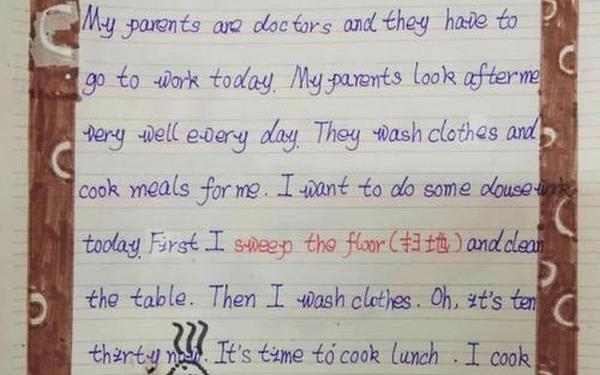 My parents are doctors and they have to
go to work today. My parents look after me
very well every day. They wash clothes and
cook meals for me. I want to do some dousework
today. First I sweep the floor (扫地) and clean
the table. Then I wash clothes. Oh, it's ten
thirty now. It's time to cook lunch. I cook